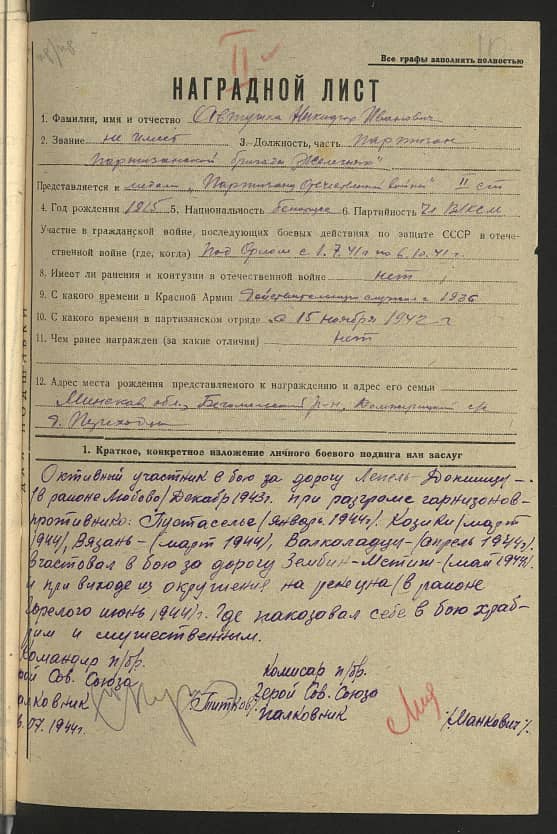 II
Все графы заполнять полностью
НАГРАДНОЙ ЛИСТ
1. Фамилия, имя и отчество Автушка Никифор Иванович
2. Звание не имеет 3. Должность, часть партизан
партизанской бригады "Железняк"
Представляется к медали "Партизану Отечественной войны" II ст
4. Год рождения 1915 5. Национальность белорусс 6. Партийность Чл ВЛКСМ
Участие в гражданской войне, последующих боевых действиях по защите СССР в отече-
ственной войне (где, когда) Под Орлом с 1.7.41г по 6.10.41г.
8. Имеет ли ранения и контузии в отечественной войне нет
9. С какого времени в Красной Армии Действительную служил с 1936
10. С какого времени в партизанском отряде с 15 ноября 1942 г
11. Чем ранее награжден (за какие отличия) нет
12. Адрес места рождения представляемого к награждению и адрес его семьи
Минская обл, Бегомльский р-н, с/с
д. Переходцы
1. Краткое, конкретное изложение личного боевого подвига или заслуг
Октивный участник в бою за дорогу Лепель-Докшицы-
(в районе Любово) Декабр 1943г. при разгроме гарнизонов-
противника: Пустаселье (январь 1944г). Козики (март
1944), Вязань-(март 1944), Валколадцы-(апрель 1944г).
Участвовал в бою за дорогу Зембин-Мстиж-(май 1944г).
и при виходе из окружения на (в районе
Горелого июнь 1944)г. Где паказовал себе в бою храб-
рим и мужественным.
Командир п/бр. Комисар п/бр.
рой Сов. Союза Герой Сов. Союза
палковник /Титков/. палковник /Манкович/.
.07.1944г.